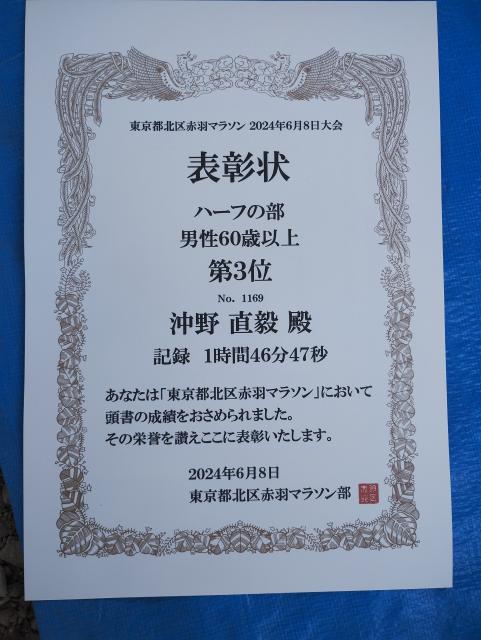 東京都北区赤羽マラソン 2024年6月8日大会
表彰状
ハーフの部
男性60歳以上
第3位
No. 1169
沖野 直毅 殿
記録 1時間46分47秒
あなたは「東京都北区赤羽マラソン」において
頭書の成績をおさめられました。
その栄誉を讃えここに表彰いたします。
2024年6月8日
東京都北区赤羽マラソン部